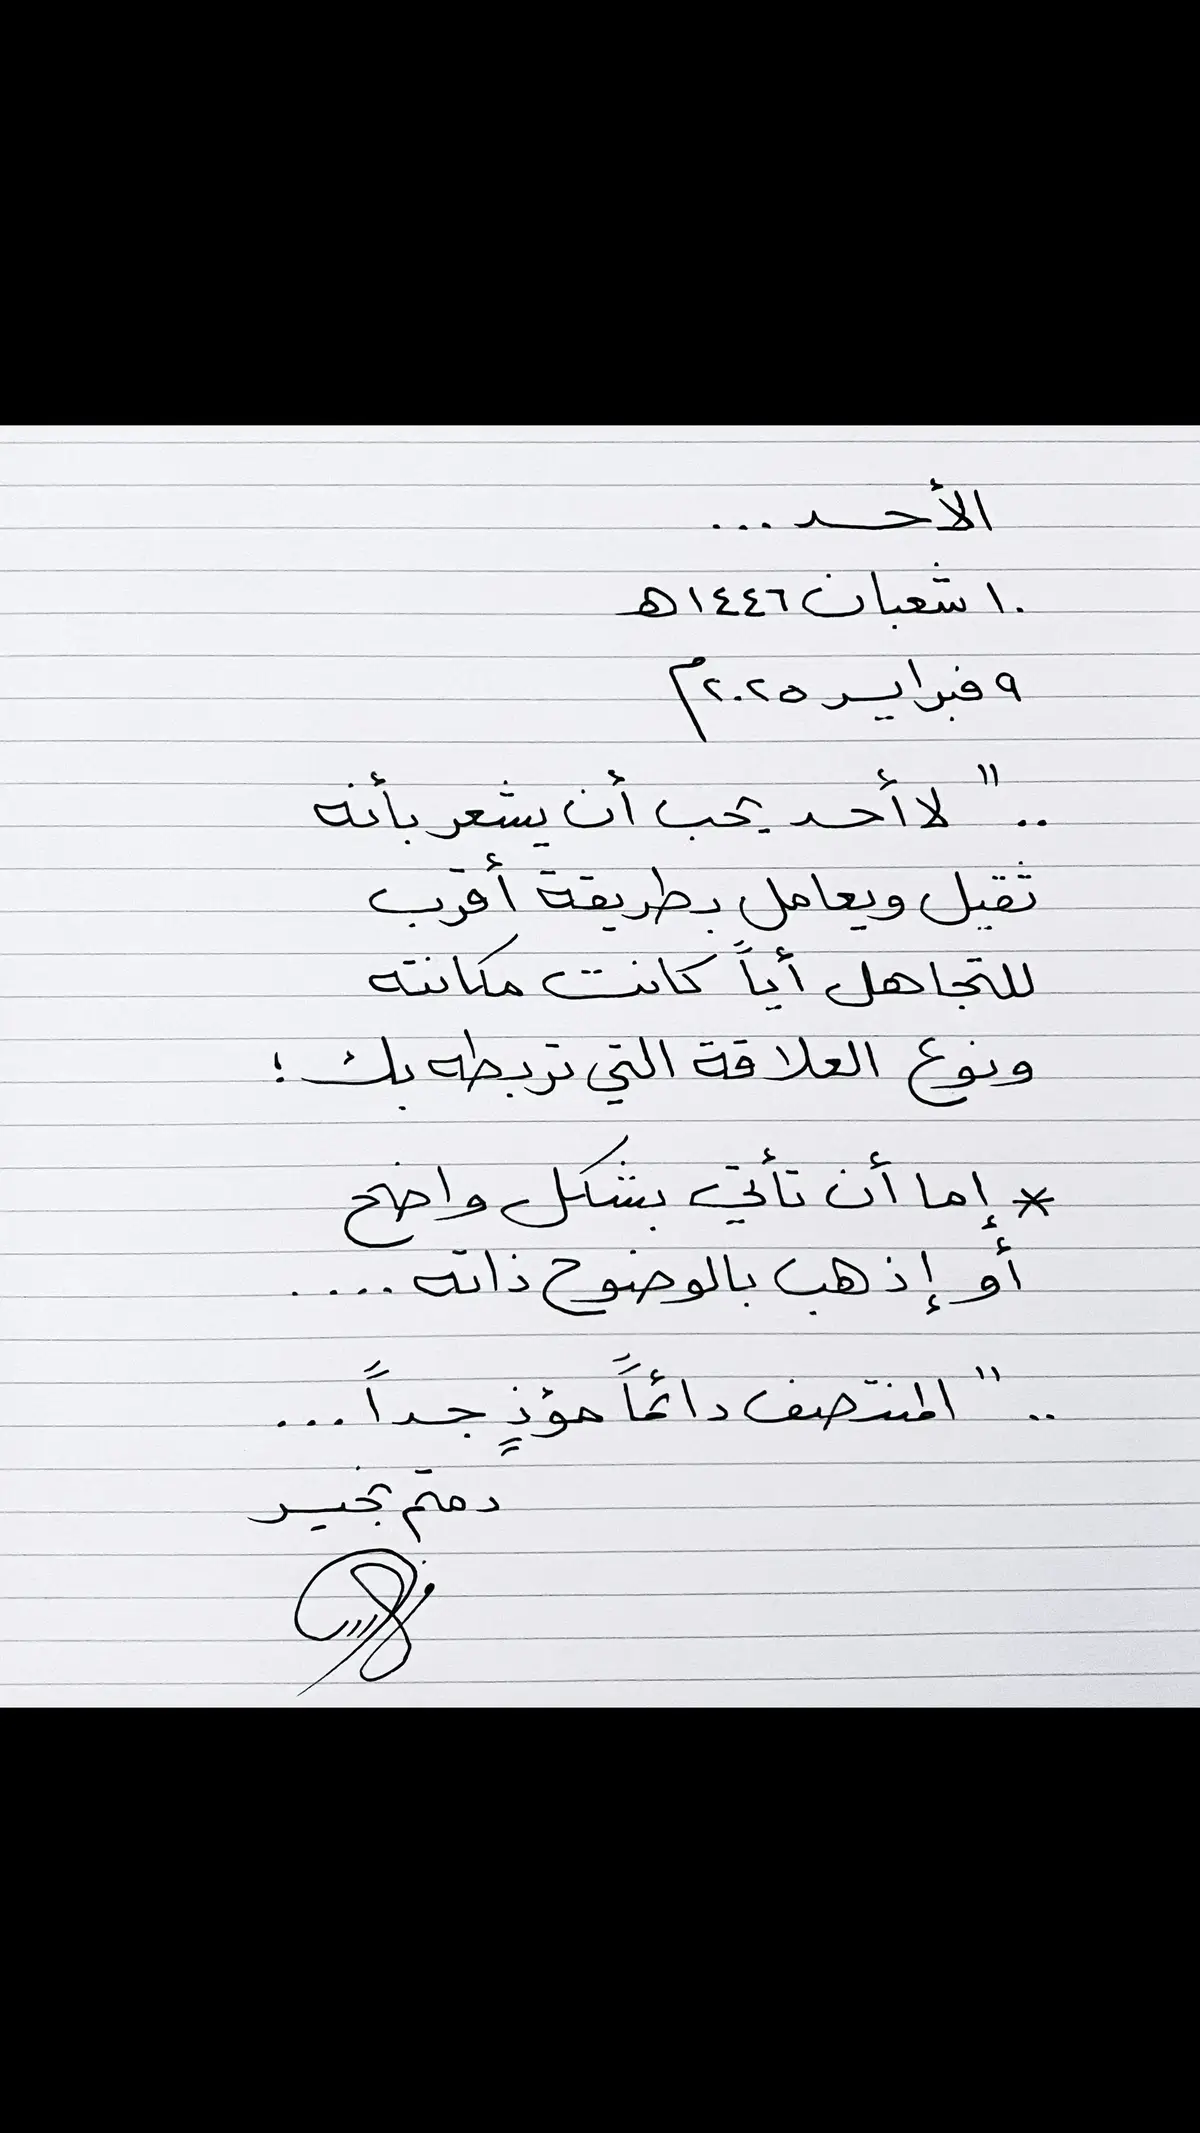 الأحد ...
١٠ شعبان ١٤٤٦هـ
٩ فبراير ٢٠٢٥م
.." لا أحد يحب أن يشعر بأنه
ثقيل ويعامل بطريقة أقرب
للتجاهل أياً كانت مكانته
ونوع العلاقة التي تربطه بك ؛
* إما أن تأتي بشكل واضح
أو إذهب بالوضوح ذاته ....
.." المنتصف دائماً مؤذٍ جداً ...
دمتم بخير